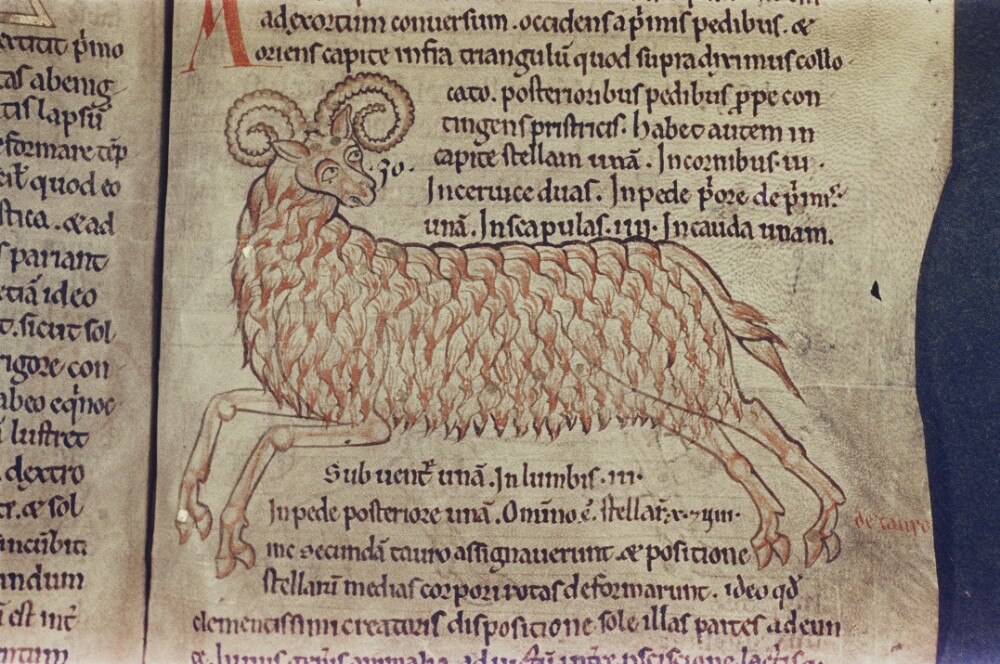 ertitit p̄mo
tas abenig
tis lapsū
eformare tēp
quod eo
stica. & ad
s pariant
etiā ideo
t. sicut sol
rigore con
abeo eq̇noc
ū lustret
dextro
er. & sol
incūbit
undum
ī est int̄
entum
A
ad exortum conuersum. occidens a p̄mis pedibus. &
oriens capite infra triangulū quod supra diximus collo
cato. posterioribus pedibus ꝓpe con
tingens pristricis. habet autem in
capite stellam unā. In cornibus. iii.
In ceruice duas. In pede p̄ore de p̄mis
unā. In scapulas. iiii. In cauda unam.
30.
Sub uentr̄ unā. In lumbis. iii.
In pede posteriore unā. Omīno ē. stellar̄. x. 7 viii.
inc secundā tauro assignauerunt. & positione
stellarū medias corpori rotas deformarunt. ideo qd̄
clementissimi creatoris dispositione sole illas partes adeun
de tauro